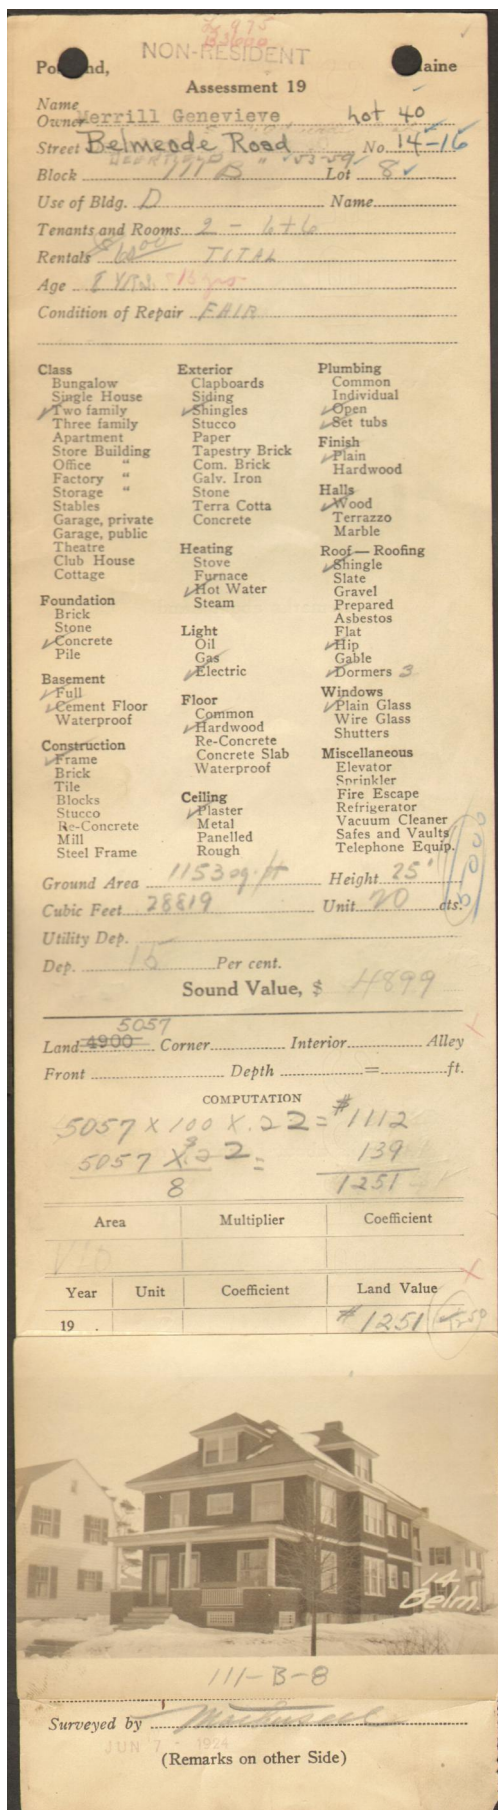 L 975
B3600
NON-RESIDENT
Portland, Maine
Assessment 19
Name
Owner Merrill Genevieve Lot 40
Street Belmeade Road No. 14-16
" 53-59
Block 111 B Lot 8
Use of Bldg. D Name
Tenants and Rooms 2 - 6+6
Rentals 60 00 TOTAL
Age 8 YRS.
Condition of Repair FAIR
Class
Bungalow
Single House
✓Two family
Three family
Apartment
Store Building
Office "
Factory "
Storage "
Stables
Garage, private
Garage, public
Theatre
Club House
Cottage
Foundation
Brick
Stone
✓Concrete
Pile
Basement
✓Full
✓Cement Floor
Waterproof
Construction
✓Frame
Brick
Tile
Blocks
Stucco
Re-Concrete
Mill
Steel Frame
Exterior
Clapboards
Siding
✓Shingles
Stucco
Paper
Tapestry Brick
Com. Brick
Galv. Iron
Stone
Terra Cotta
Concrete
Heating
Stove
Furnace
✓Hot Water
Steam
Light
Oil
Gas
✓Electric
Floor
Common
✓Hardwood
Re-Concrete
Concrete Slab
Waterproof
Ceiling
✓Plaster
Metal
Panelled
Rough
Plumbing
Common
Individual
✓Open
✓Set tubs
Finish
✓Plain
Hardwood
Halls
✓Wood
Terrazzo
Marble
Roof — Roofing
✓Shingle
Slate
Gravel
Prepared
Asbestos
Flat
✓Hip
Gable
✓Dormers 3
Windows
✓Plain Glass
Wire Glass
Shutters
Miscellaneous
Elevator
Sprinkler
Fire Escape
Refrigerator
Vacuum Cleaner
Safes and Vaults
Telephone Equip.
Ground Area 1153 sq. ft Height 25'
Cubic Feet 28819 Unit 20 cts.
Utility Dep.
Dep. 15 Per cent.
Sound Value, $ 4899
5057
Land 4900 Corner Interior Alley
Front Depth = ft.
COMPUTATION
5057 X 100 X .22 = $1112
5057 X .22 = 139
8 1251
Area Multiplier Coefficient
Year Unit Coefficient Land Value
19 . $1251 1250
14
Belm.
111-B-8
Surveyed by
JUN 7 - 1924
(Remarks on other Side)